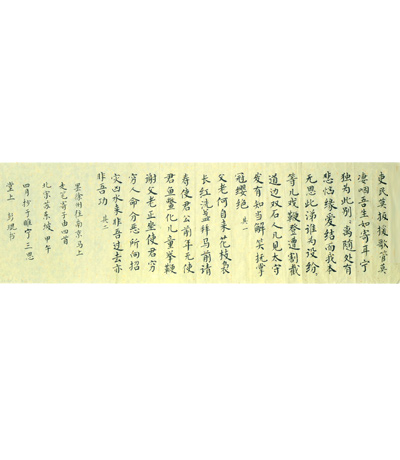 吏民莫扳援歌管莫
凄咽吾生如寄耳宁
独为此别离随处有
悲恼缘爱结而我本
无恩此涕谁为设纷
等儿戏鞭镫遭割截
道边双石人几见太守
发有知当解笑抚掌
冠缨绝 其一
父老何自来花枝袅
长红洗盏拜马前请
寿使君公前年无使
君鱼鳖化儿童举鞭
谢父老正坐使君穷
穷人命分恶所向招
灾凶水来非吾过去亦
非吾功 其二
罢徐州往南京马上
走笔寄子由四首
北宋苏东坡 甲午
四月抄于睢宁三思
堂上 书